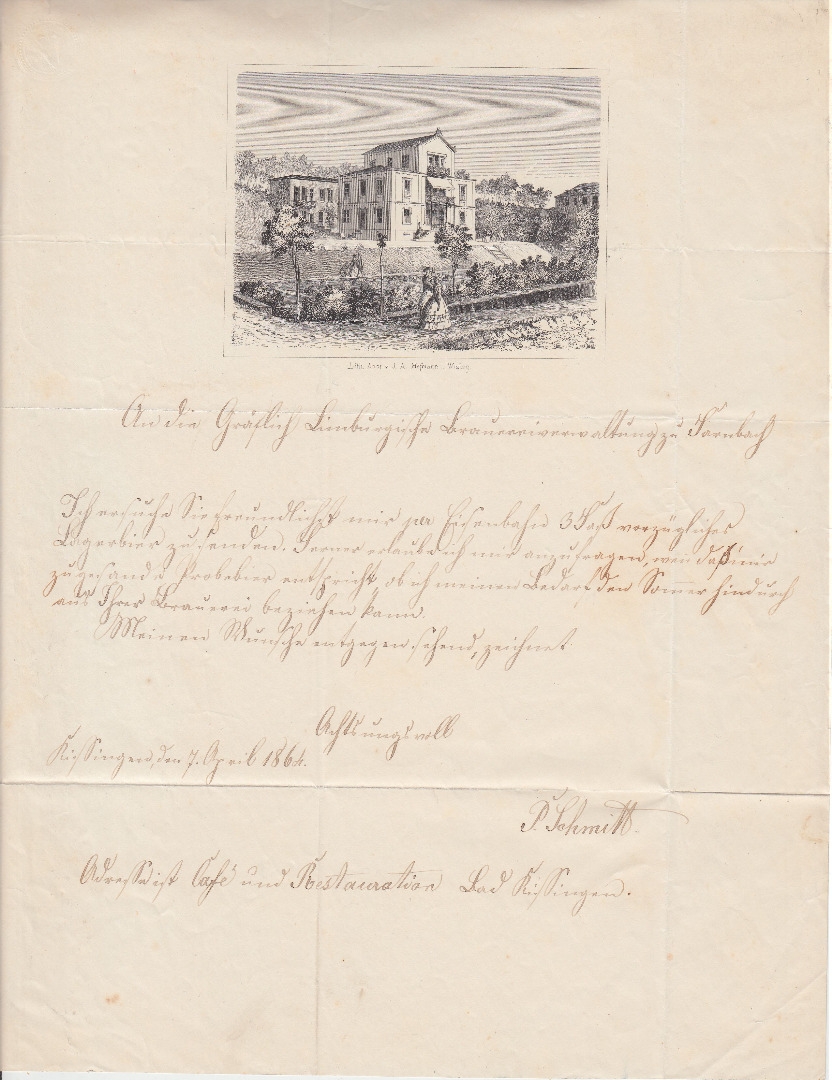 Lith. Anst. v. J. A. Hofmann Wzbrg
An die Gräflich Limburgische Brauereiverwaltung zu Farnbach
Ich ersuche Sie freundlichst mir per Eisenbahn 3 Faß vorzügliches
Lagerbier zu senden. Ferner erlaube ich mir anzufragen, wen daß mir
zugesande Probebier entspricht, ob ich meinen Bedarf den Sommer hindurch
aus Ihrer Brauerei beziehen kann.
Meinen Wunsche entgegen sehend, zeichnet
Achtsungsvoll
Kissingen, den 7. April 1864.
P. Schmitt.
Adresse ist Café und Restauration Bad Kissingen.